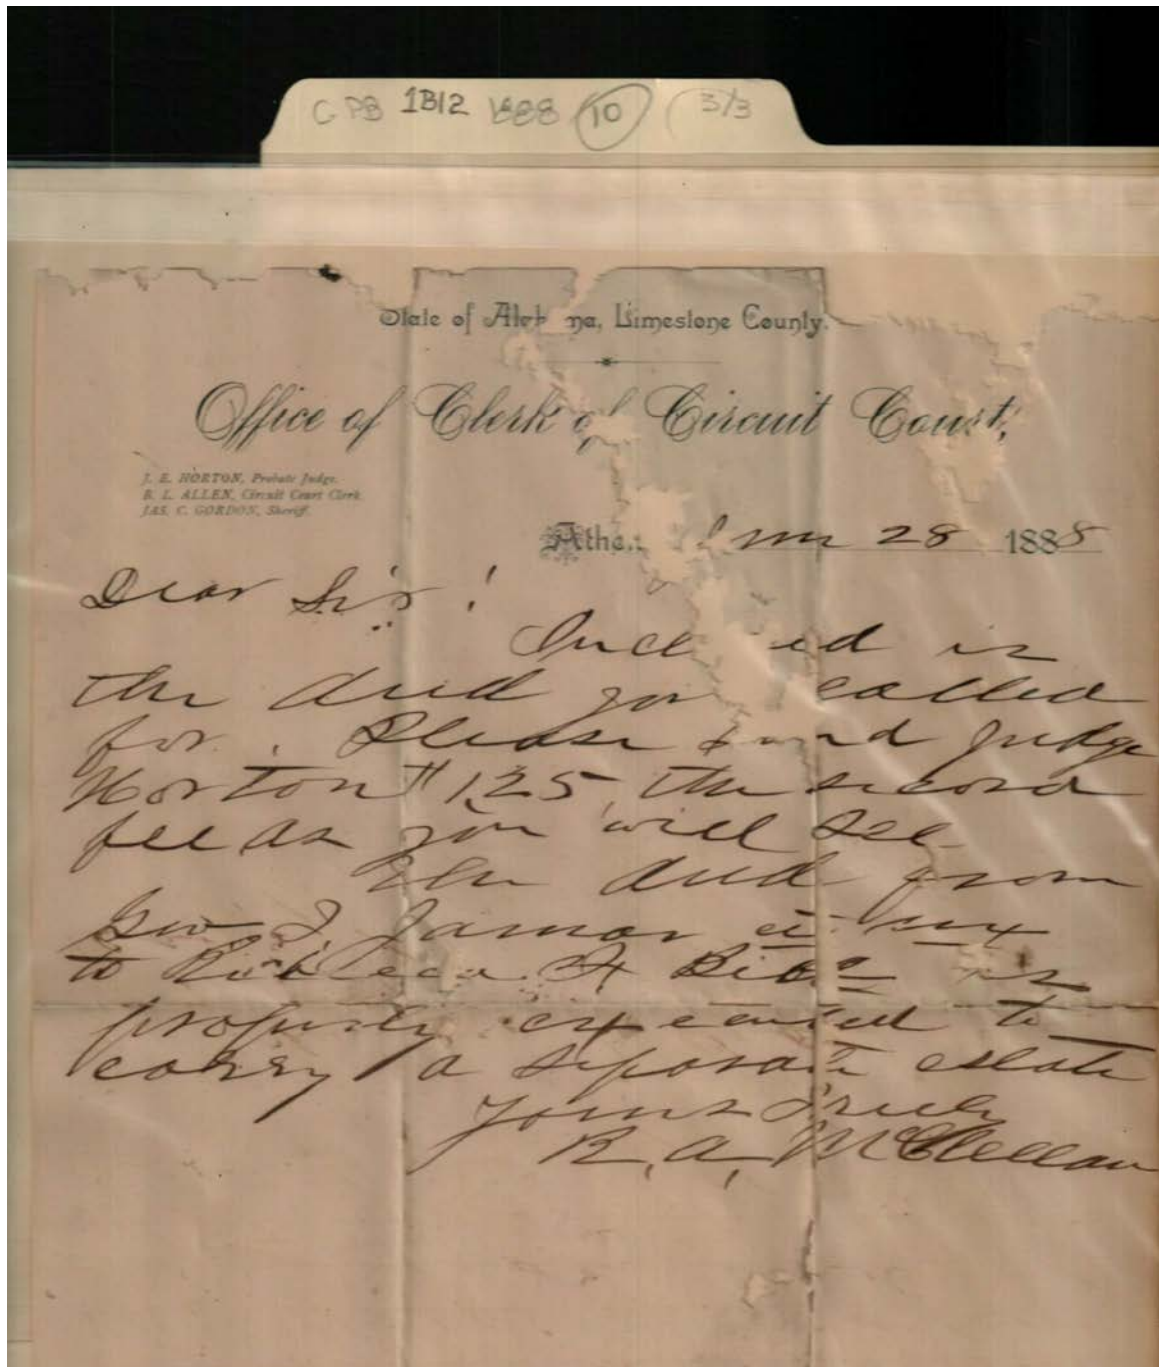 C PB 1B12 1888 10 3/3
State of Alab ma, Limestone County.
Office of Clerk of Circuit Court,
J. E. HORTON, Probate Judge.
B. L. ALLEN, Circuit Court Clerk.
JAS. C. GORDON, Sheriff.
Athen 28 1888
Dear Sir!
Incl ed is
the deed you called
for. Please send Judge
Horton $1.25, the record
fee as you will see.
The deed from
Geo J. Lamar et ux
to Rebecca Bibb is
properly executed to
convey a separate estate
Yours Truly
R. A. McClellan